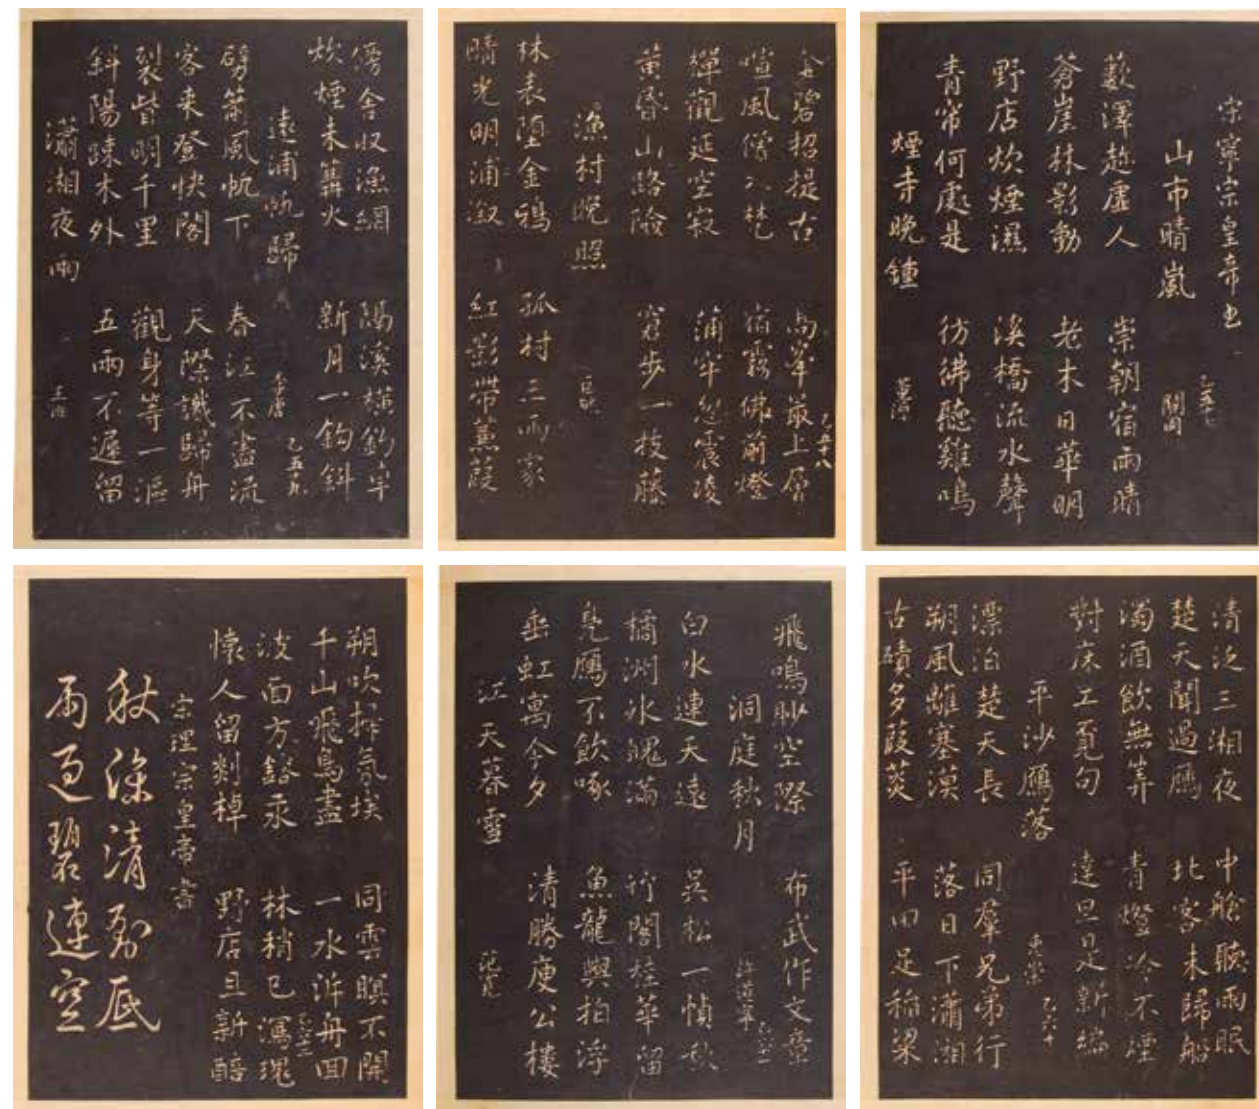 宋寧宗皇帝书
山市晴嵐 關同 乙五七
藪澤趁虛人 崇朝宿雨晴
蒼崖林影動 老木日華明
野店炊煙濕 溪橋流水聲
青帘何處是 彷彿聽雞鳴
煙寺晚鐘 董源
金碧招提古 尚峯最上層 乙五十八
喧風僧入梵 宿霧佛前燈
殫觀延空寂 蒲牢忽震凌
黃昏山路險 穷步一枝藤
漁村晚照 巨然
林表墮金鴉 孤村三兩家
晴光明浦溆 紅影帶蒹葭
傍舍收漁網 隔溪橫釣車
炊煙未篝火 新月一鉤斜
遠浦帆歸 李唐 乙五九
劈箭風帆下 春江不盡流
客来登快閣 天際識歸舟
裂眥明千里 觀身等一漚
斜陽疎木外 五兩不遲留
瀟湘夜雨 王洽
清泛三湘夜 中艙聽雨眠
楚天聞過鴈 北客未歸船
濁酒飲無筭 青燈冷不煙
對床工覓句 達旦足新編
平沙鴈落 惠崇 乙六十
漂泊楚天長 同羣兄弟行
朔風離塞漠 落日下瀟湘
古磧多葭菼 平田足稻粱
飛鳴眇空際 布武作文章
洞庭秋月 許道寧
白水連天遠 吳松一幀秋
橘洲冰魄滿 竹閣桂華留
鳧鴈不飲啄 魚龍與拍浮
垂虹寓今夕 清勝庾公樓
江天暮雪 范寬
朔吹掃氛埃 同雲暝不開
千山飛鳥盡 一水泝舟回
波面方鎔汞 林稍已瀉瑰
懷人留剡棹 野店且新醅
宋理宗皇帝書
秋深清到底
雨過碧連空